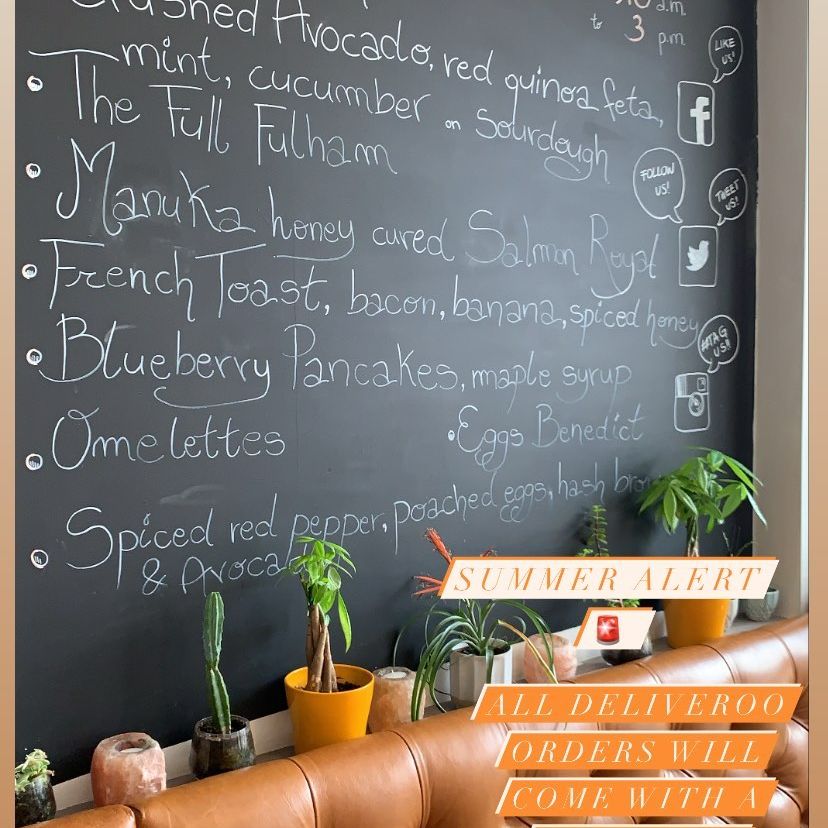 Crushed Avocado, red quinoa feta,
mint, cucumber on Sourdough
The Full Fulham
Manuka honey cured Salmon Royal
French Toast, bacon, banana, spiced honey
Blueberry Pancakes, maple syrup
Omelettes
Eggs Benedict
Spiced red pepper, poached eggs, hash
&
a.m.
to 3 p.m.
LIKE
US!
f
FOLLOW
US!
TWEET
US!
#TAG
US!!
SUMMER ALERT
ALL DELIVEROO
ORDERS WILL
COME WITH A